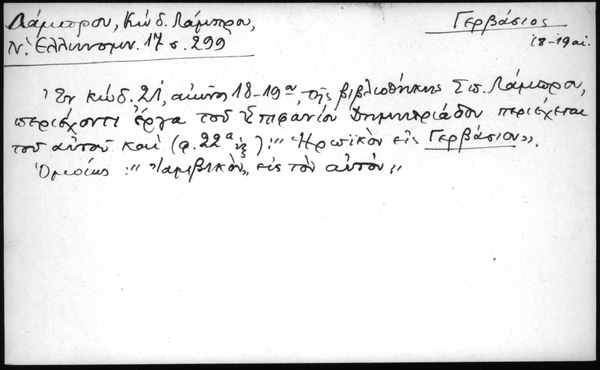 Λάμπρου, Κώδ. Λάμπρου,
Ν. Ἑλληνομν. 17 σ. 299
Γερβάσιος
18-19 αἰ.
Ἐν κώδ. 21, αἰῶνος 18-19ου, τῆς βιβλιοθήκης Σπ. Λάμπρου,
περιέχοντι ἔργα τοῦ Ἐπιφανίου Δημητριάδου περιέχεται
τοῦ αὐτοῦ καὶ (φ. 22α ἑξ): "Ἡρωϊκὸν εἰς Γερβάσιον".
Ὁμοίως: "Ἰαμβικὸν, εἰς τὸν αὐτόν"